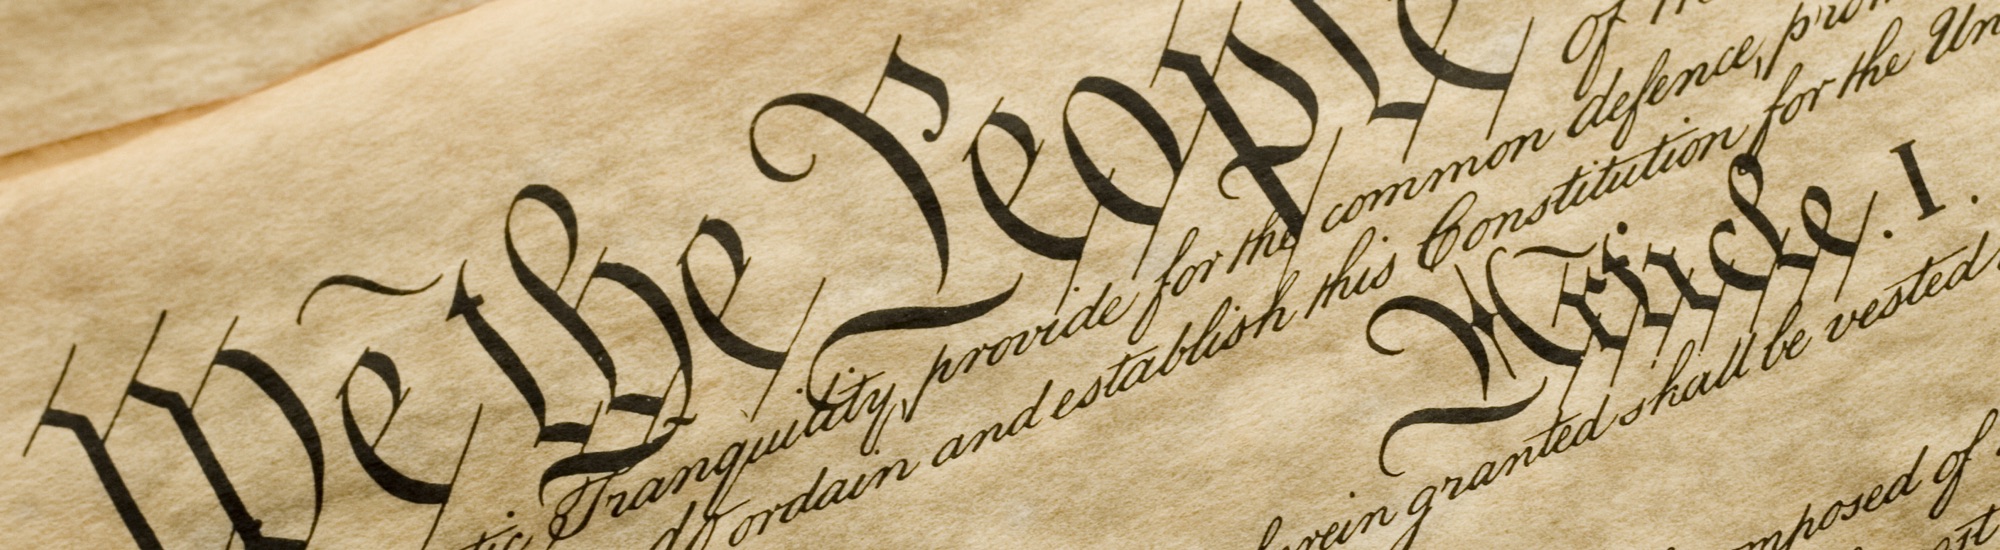 We the People
of the
tic Tranquility, provide for the common defence, prom
do ordain and establish this Constitution for the Un
Article. I.
herein granted shall be vested
mposed of